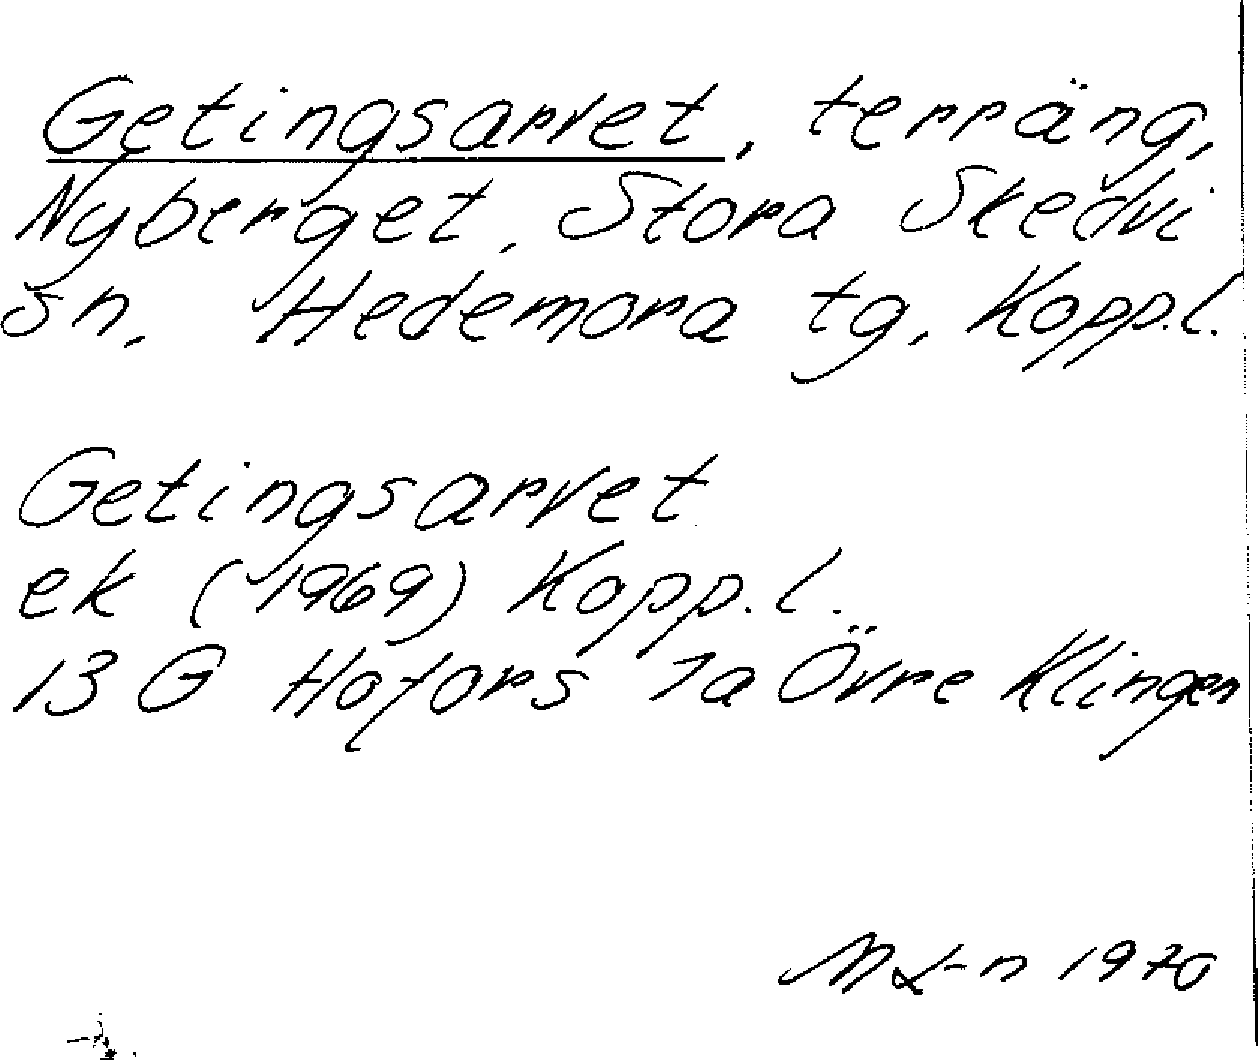 Getingsarvet, terräng,
Nyberget, Stora Skedvi
sn, Hedemora tg, Kopp.l.
Getingsarvet
ek (1969) Kopp.l.
13 G Hofors 1a Övre Klingen
1970